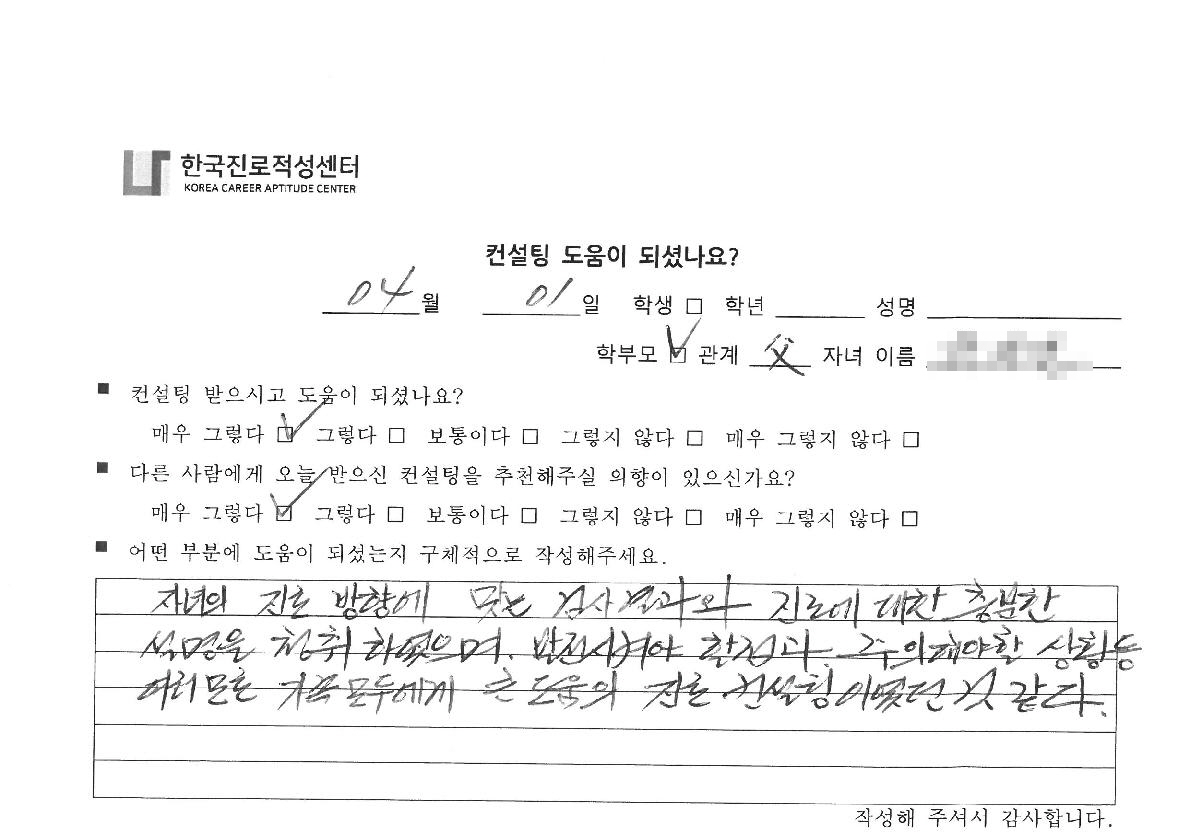 한국진로적성센터
KOREA CAREER APTITUDE CENTER
컨설팅 도움이 되셨나요?
04월 01일 학생 □ 학년 성명
학부모 ☑ 관계 父 자녀 이름
■ 컨설팅 받으시고 도움이 되셨나요?
매우 그렇다 ☑ 그렇다 □ 보통이다 □ 그렇지 않다 □ 매우 그렇지 않다 □
■ 다른 사람에게 오늘 받으신 컨설팅을 추천해주실 의향이 있으신가요?
매우 그렇다 ☑ 그렇다 □ 보통이다 □ 그렇지 않다 □ 매우 그렇지 않다 □
■ 어떤 부분에 도움이 되셨는지 구체적으로 작성해주세요.
자녀의 진로 방향에 맞는 검사결과와 진로에 대한 충분한
설명을 청취 하였으며, 발전시켜야 할점과 주의해야할 상황등
가족 모두에게 큰 도움의 진로 컨설팅이였던 것 같다.
작성해 주셔서 감사합니다.